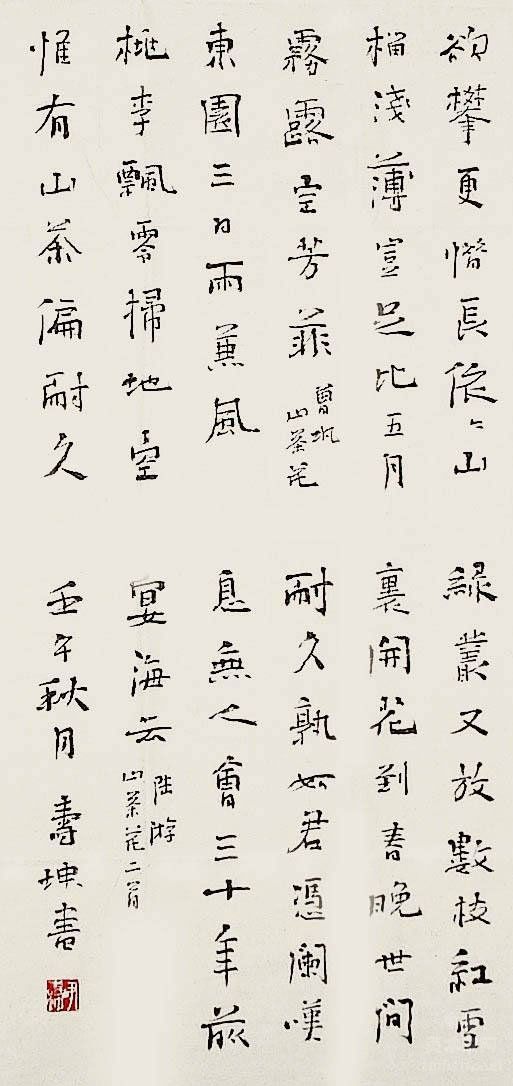 欲攀更惜長依〻山
榴淺薄豈足比五月
霧露空芳菲
曾巩
山茶花
東園三日雨兼風
桃李飄零掃地空
惟有山茶偏耐久
綠叢又放數枝紅雪
裏開花到春晚世間
耐久孰如君憑闌嘆
息無人會三十年前
宴海云
陸游
山茶花二首
壬午秋月壽坤書